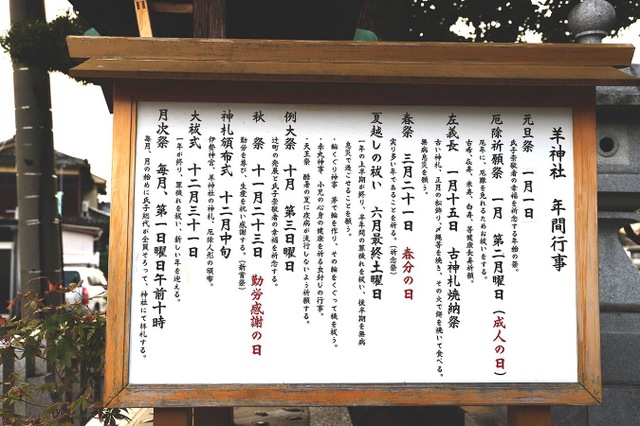 羊神社　年間行事
元旦祭　一月一日
氏子崇敬者の幸福を祈念する年始の祭。
厄除祈願祭　一月　第二月曜日（成人の日）
厄年に、厄難を免れるためお祓いをする。
古希、長寿、米寿、白寿、等健康長寿祈願。
左義長　一月十五日　古神札焼納祭
古い神札、正月の松飾り、〆縄等を焼き、その火で餅を焼いて食べる。
無病息災を願う。
春祭　三月二十一日　春分の日
実り多い年であることを祈る。（祈念祭）
夏越しの祓い　六月最終土曜日
一年の上半期が終り、半年間の罪穢れを祓い、後半期を無病
息災で過ごせることを願う。
・輪くぐり神事　茅で輪を作り、その輪をくぐって穢を祓う。
・赤丸神事　小児の心身の健康を祈る虫封じの行事。
・天王祭　酷暑の夏に疫病が流行しないよう祈願する。
例大祭　十月　第三日曜日
辻町の発展と氏子崇敬者の幸福を祈念する。
秋　祭　十一月二十三日　勤労感謝の日
勤労を尊び、生産を祝い感謝する。（新嘗祭）
神札頒布式　十二月中旬
伊勢神宮・羊神社の神札、厄除人形の頒布。
大祓式　十二月三十一日
一年が終り、罪穢れを祓い、新しい年を迎える。
月次祭　毎月、第一日曜日午前十時
毎月、月の始めに氏子総代が全員そろって、神社にて拝礼する。